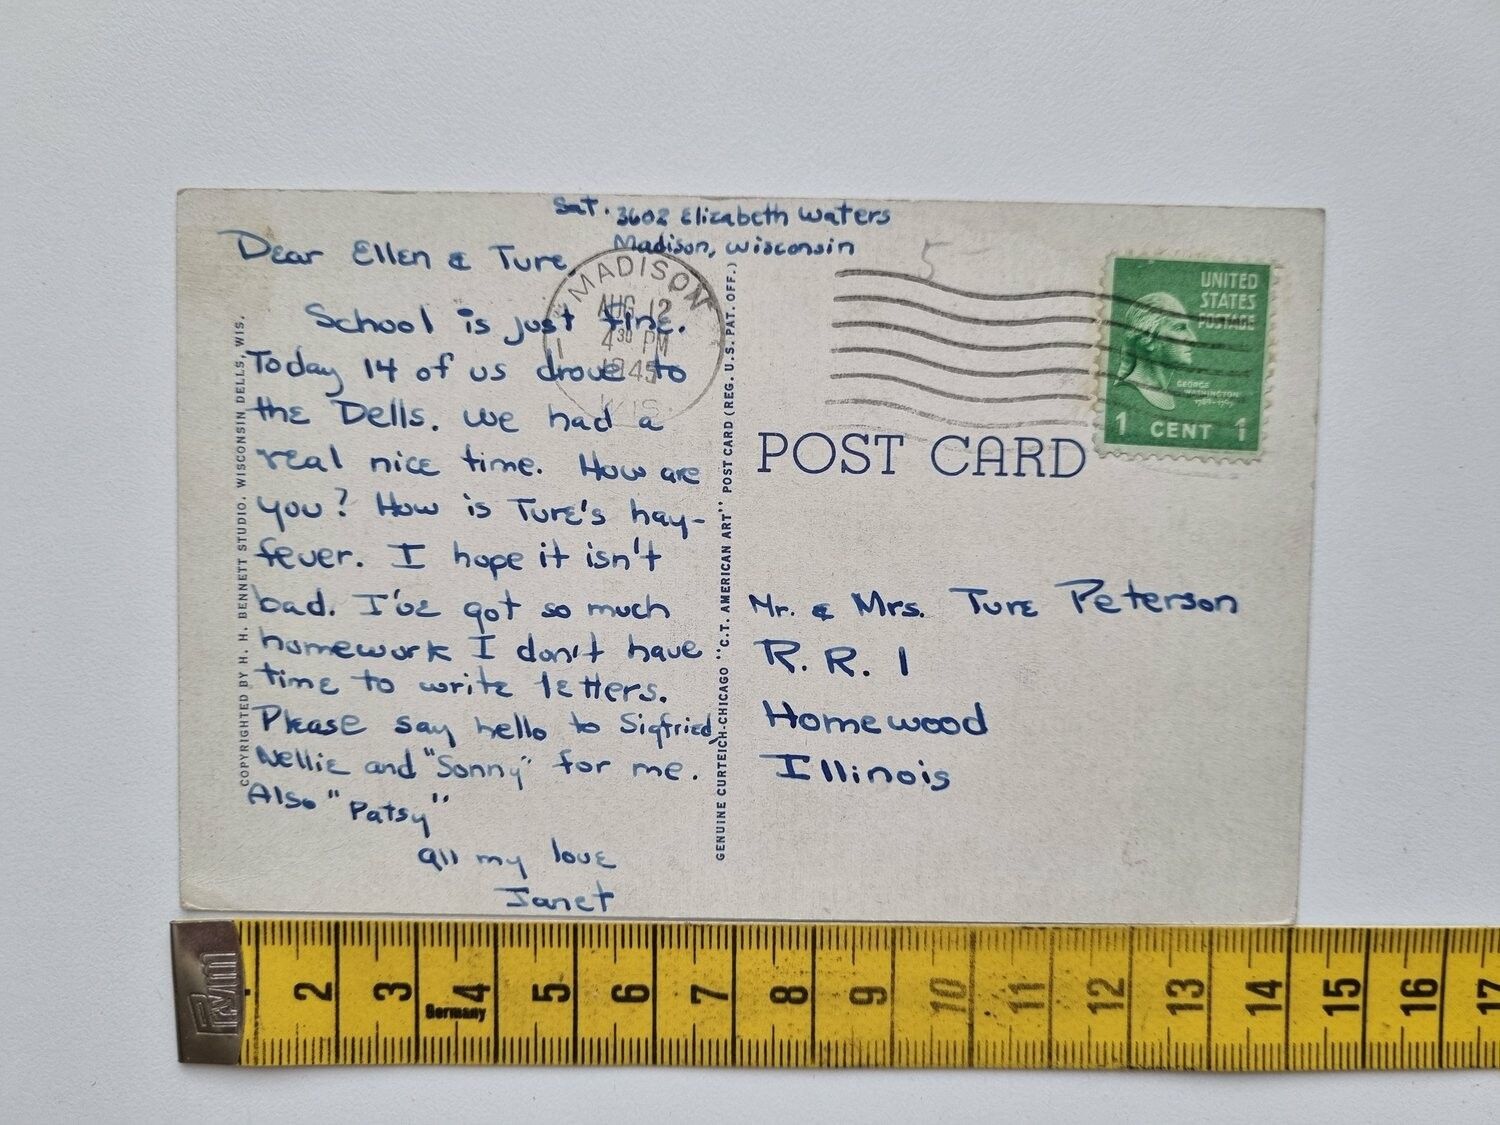 Sat. 3602 Elizabeth Waters
Madison, Wisconsin
Dear Ellen & Ture,
School is just fine.
Today 14 of us drove to
the Dells. We had a
real nice time. How are
you? How is Ture's hay-
fever. I hope it isn't
bad. I've got so much
homework I don't have
time to write letters.
Please say hello to Sigfried,
Nellie and "Sonny" for me.
Also "Patsy"
All my love
Janet
COPYRIGHTED BY H. H. BENNETT STUDIO, WISCONSIN DELLS, WIS.
GENUINE CURTEICH-CHICAGO "C.T. AMERICAN ART" POST CARD (REG. U.S. PAT. OFF.)
MADISON
AUG 12
4 30 PM
1945
WIS.
1
5
UNITED
STATES
POSTAGE
GEORGE
WASHINGTON
1789-1797
1 CENT 1
POST CARD
Mr. & Mrs. Ture Peterson
R. R. 1
Homewood
Illinois
2 3 4 5 6 7 8 9 10 11 12 13 14 15 16 17
Germany